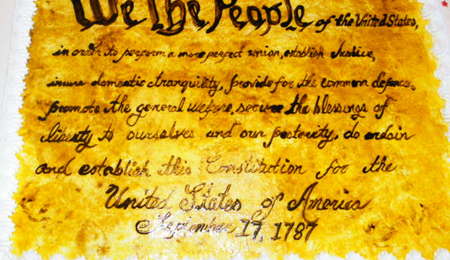 We The People of the United States,
in order to preform a more perfect union, establish Justice,
insure domestic tranquility, provide for the common defence,
promote the general welfare, secure the blessings of
liberty to ourselves and our posterity, do ordain
and establish this Constitution for the
United States of America
September 17, 1787